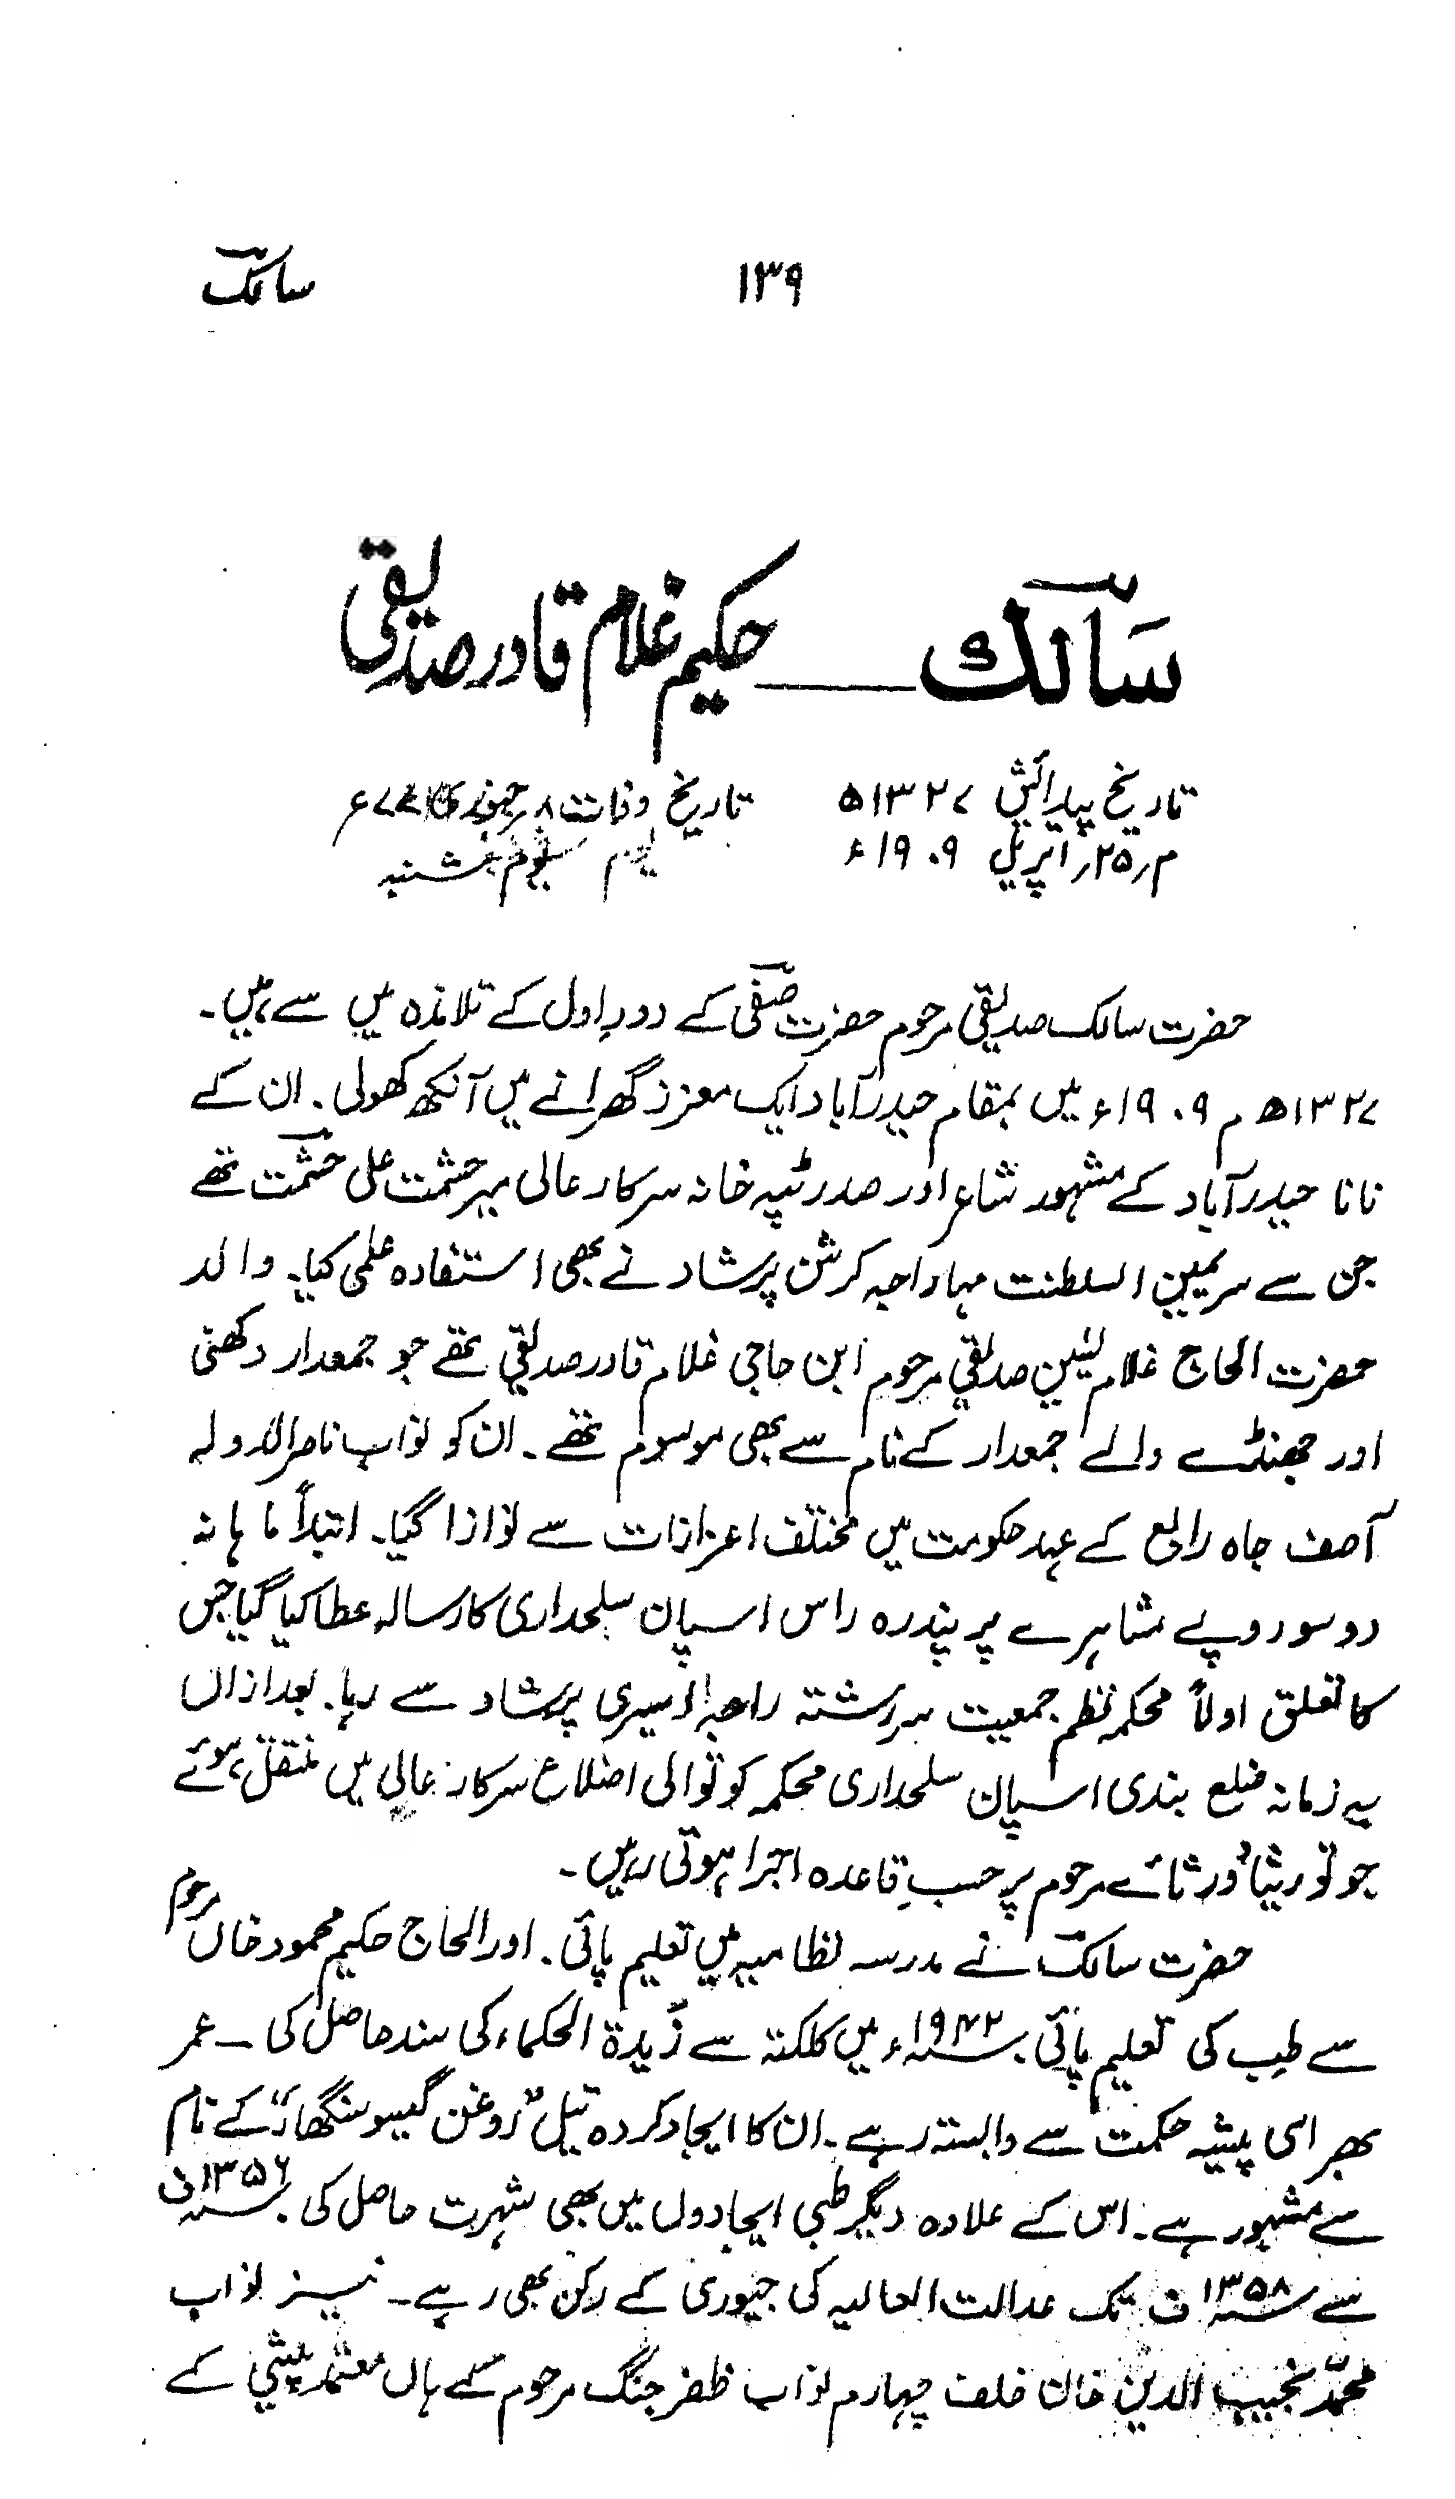 سالکؔ
۱۳۹
سالک ــــ حکیم غلام قادر صدیقی
تاریخ پیدائش ۱۳۲۷ھ
م ۲۵؍ اپریل ۱۹۰۹ء
تاریخ وفات ۸؍ جنوری
یوم شنبہ
حضرت سالک صدیقی مرحوم حضرت صفیؔ کے دورِ اول کے تلامذہ میں سے ہیں۔
۱۳۲۷ھ م ۱۹۰۹ء میں بمقام حیدرآباد ایک معزز گھرانے میں آنکھ کھولی۔ ان کے
نانا حیدرآباد کے مشہور شاعر اور صدر ٹپہ خانہ سرکار عالی میر حشمت علی حشمتؔ تھے
جن سے سر یمین السلطنت مہاراجہ کرشن پرشاد نے بھی استفادہ علمی کیا۔ والد
حضرت الحاج غلام یٰسین صدیقی مرحوم ابن حاجی غلام قادر صدیقی تھے جو جمعدار دکھنی
اور جھنڈے والے جمعدار کے نام سے بھی موسوم تھے۔ ان کو نواب ناصرالدولہ
آصف جاہ رابع کے عہد حکومت میں مختلف اعزازات سے نوازا گیا۔ ابتداً ماہانہ
دو سو روپے مشاہرے پر پندرہ راس اسپان سلحداری کا رسالہ عطا کیا گیا جس
کا تعلق اولاً محکمہ نظم جمعیت سررشتہ راجہ اسیری پرشاد سے رہا۔ بعد ازاں
بہ زمانہ ضلع بندی اسپان سلحداری محکمہ کوتوالی اضلاع سرکار عالی میں منتقل ہوئے
جو توریثاً ورثائے مرحوم پر حسبِ قاعدہ اجرا ہوتی رہیں۔
حضرت سالکؔ نے مدرسہ نظامیہ میں تعلیم پائی۔ اور الحاج حکیم محمود خاں مرحوم
سے طب کی تعلیم پائی۔ ۱۹۴۲ء میں کلکتہ سے زبدۃ الحکماء کی سند حاصل کی ــ عمر
بھر اسی پیشہ حکمت سے وابستہ رہے۔ ان کا ایجاد کردہ تیل "روغن گیسو سنگھار" کے نام
سے مشہور ہے۔ اس کے علاوہ دیگر طبی ایجادوں میں بھی شہرت حاصل کی۔ ۱۳۵۶ف
سے ۱۳۵۸ف تک عدالت العالیہ کی جیوری کے رکن بھی رہے۔ نیز نواب
محمدّ نجیب الدین خان خلف چہارم نواب ظفر جنگ مرحوم کے ہاں معتمد پیشی کے